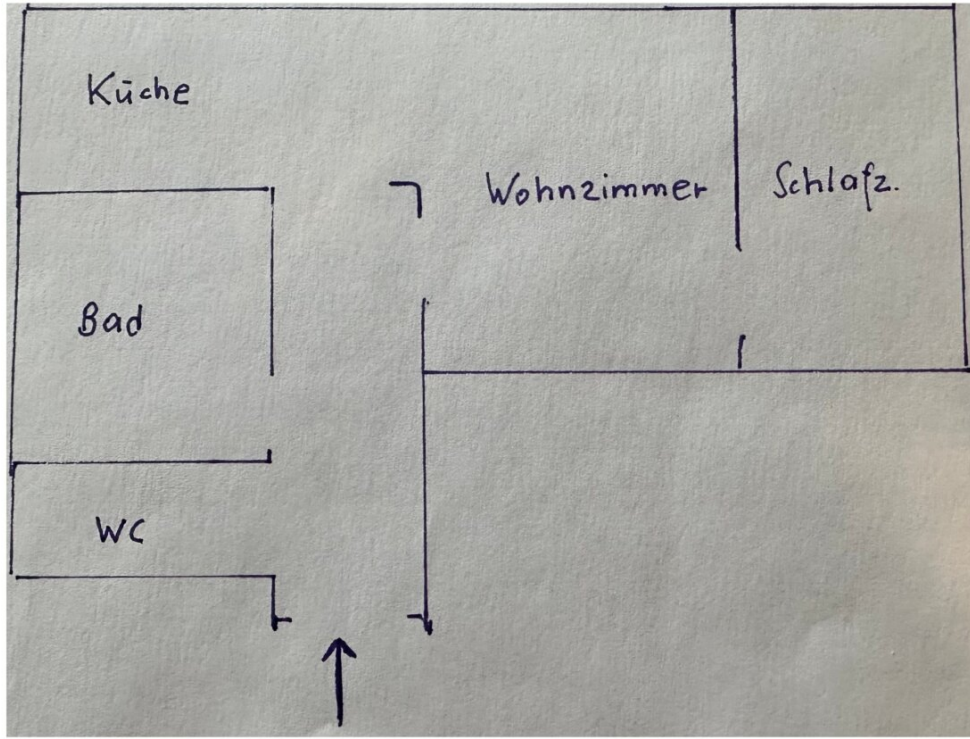 Küche
Wohnzimmer
Schlafz.
Bad
WC